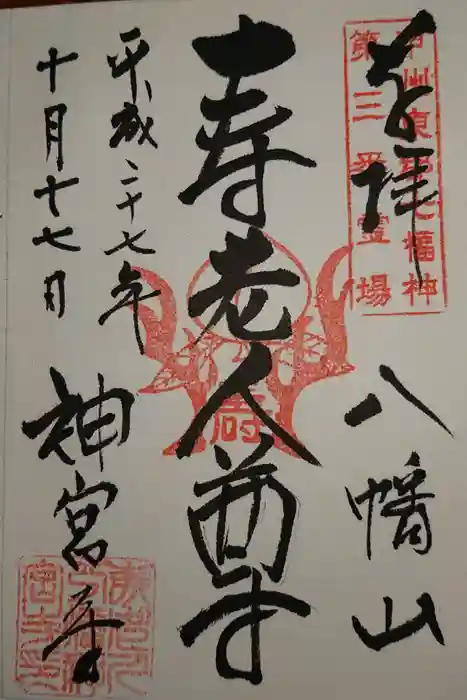 奉拝
八幡山
甲州東郡七福神
第三番霊場
寿老人尊
寿
平成二十七年
十月十七日
神宮寺